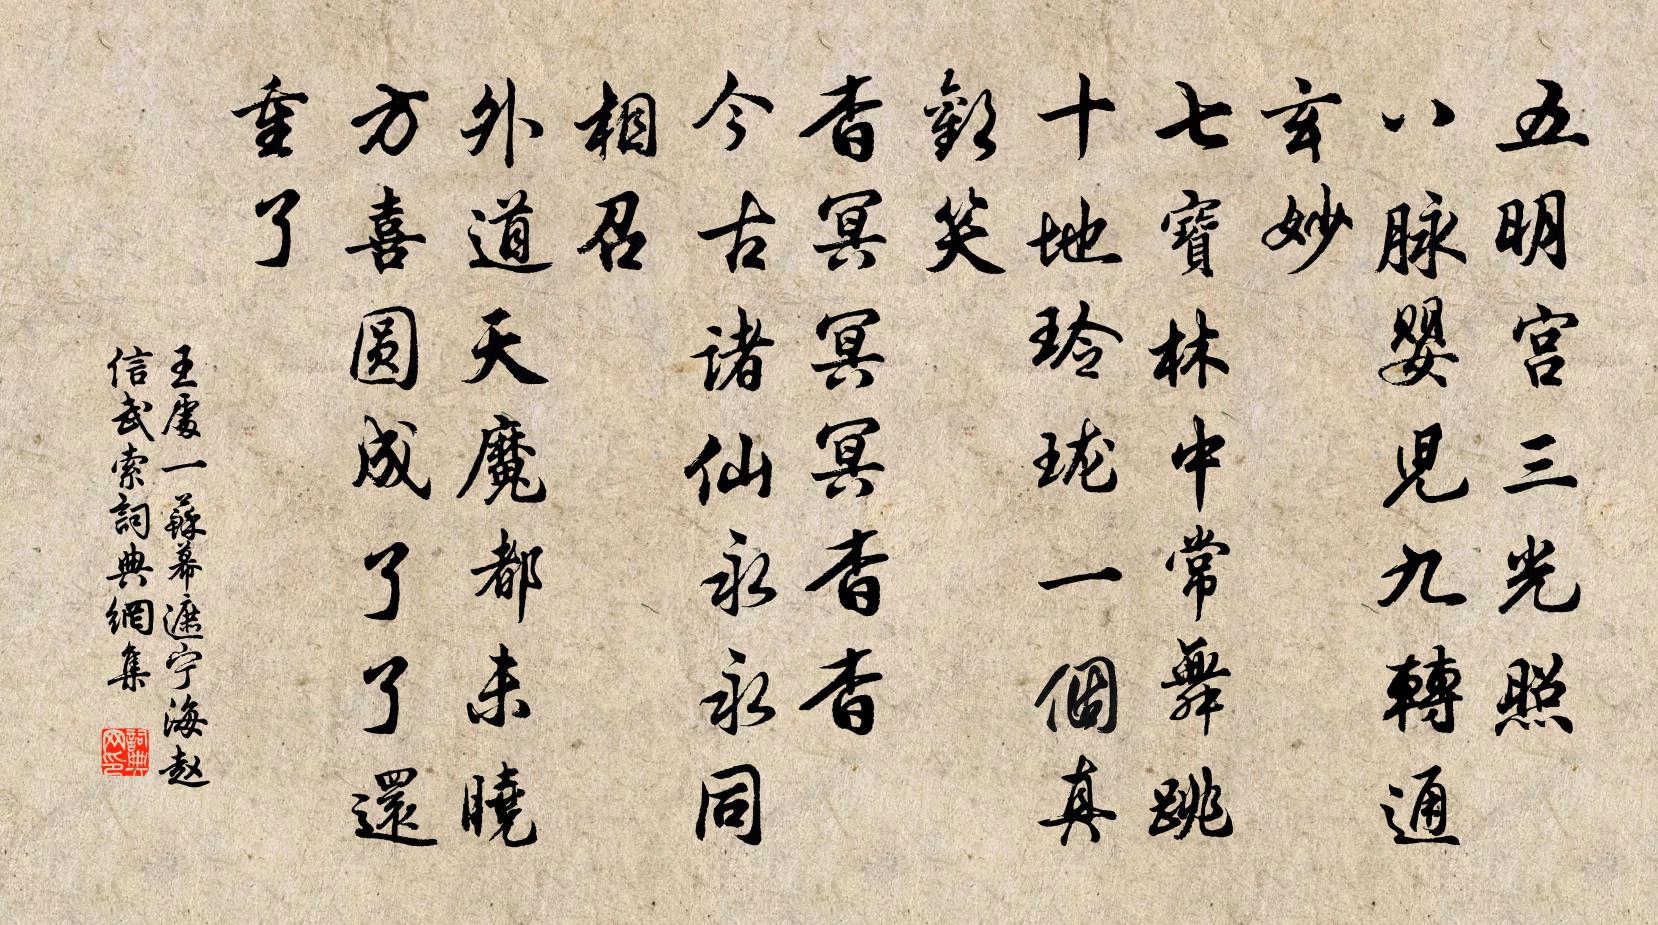 五明宫三光照
八脉婴兒九轉通
玄妙
七寶林中常舞跳
十地玲珑一個真
歡笑
杳冥冥冥杳杳
今古诸仙永永同
相召
外道天魔都未曉
方喜圆成了了還
重了
王處一蘇幕遮宁海赵
信武索詞典網集
詞典
网印